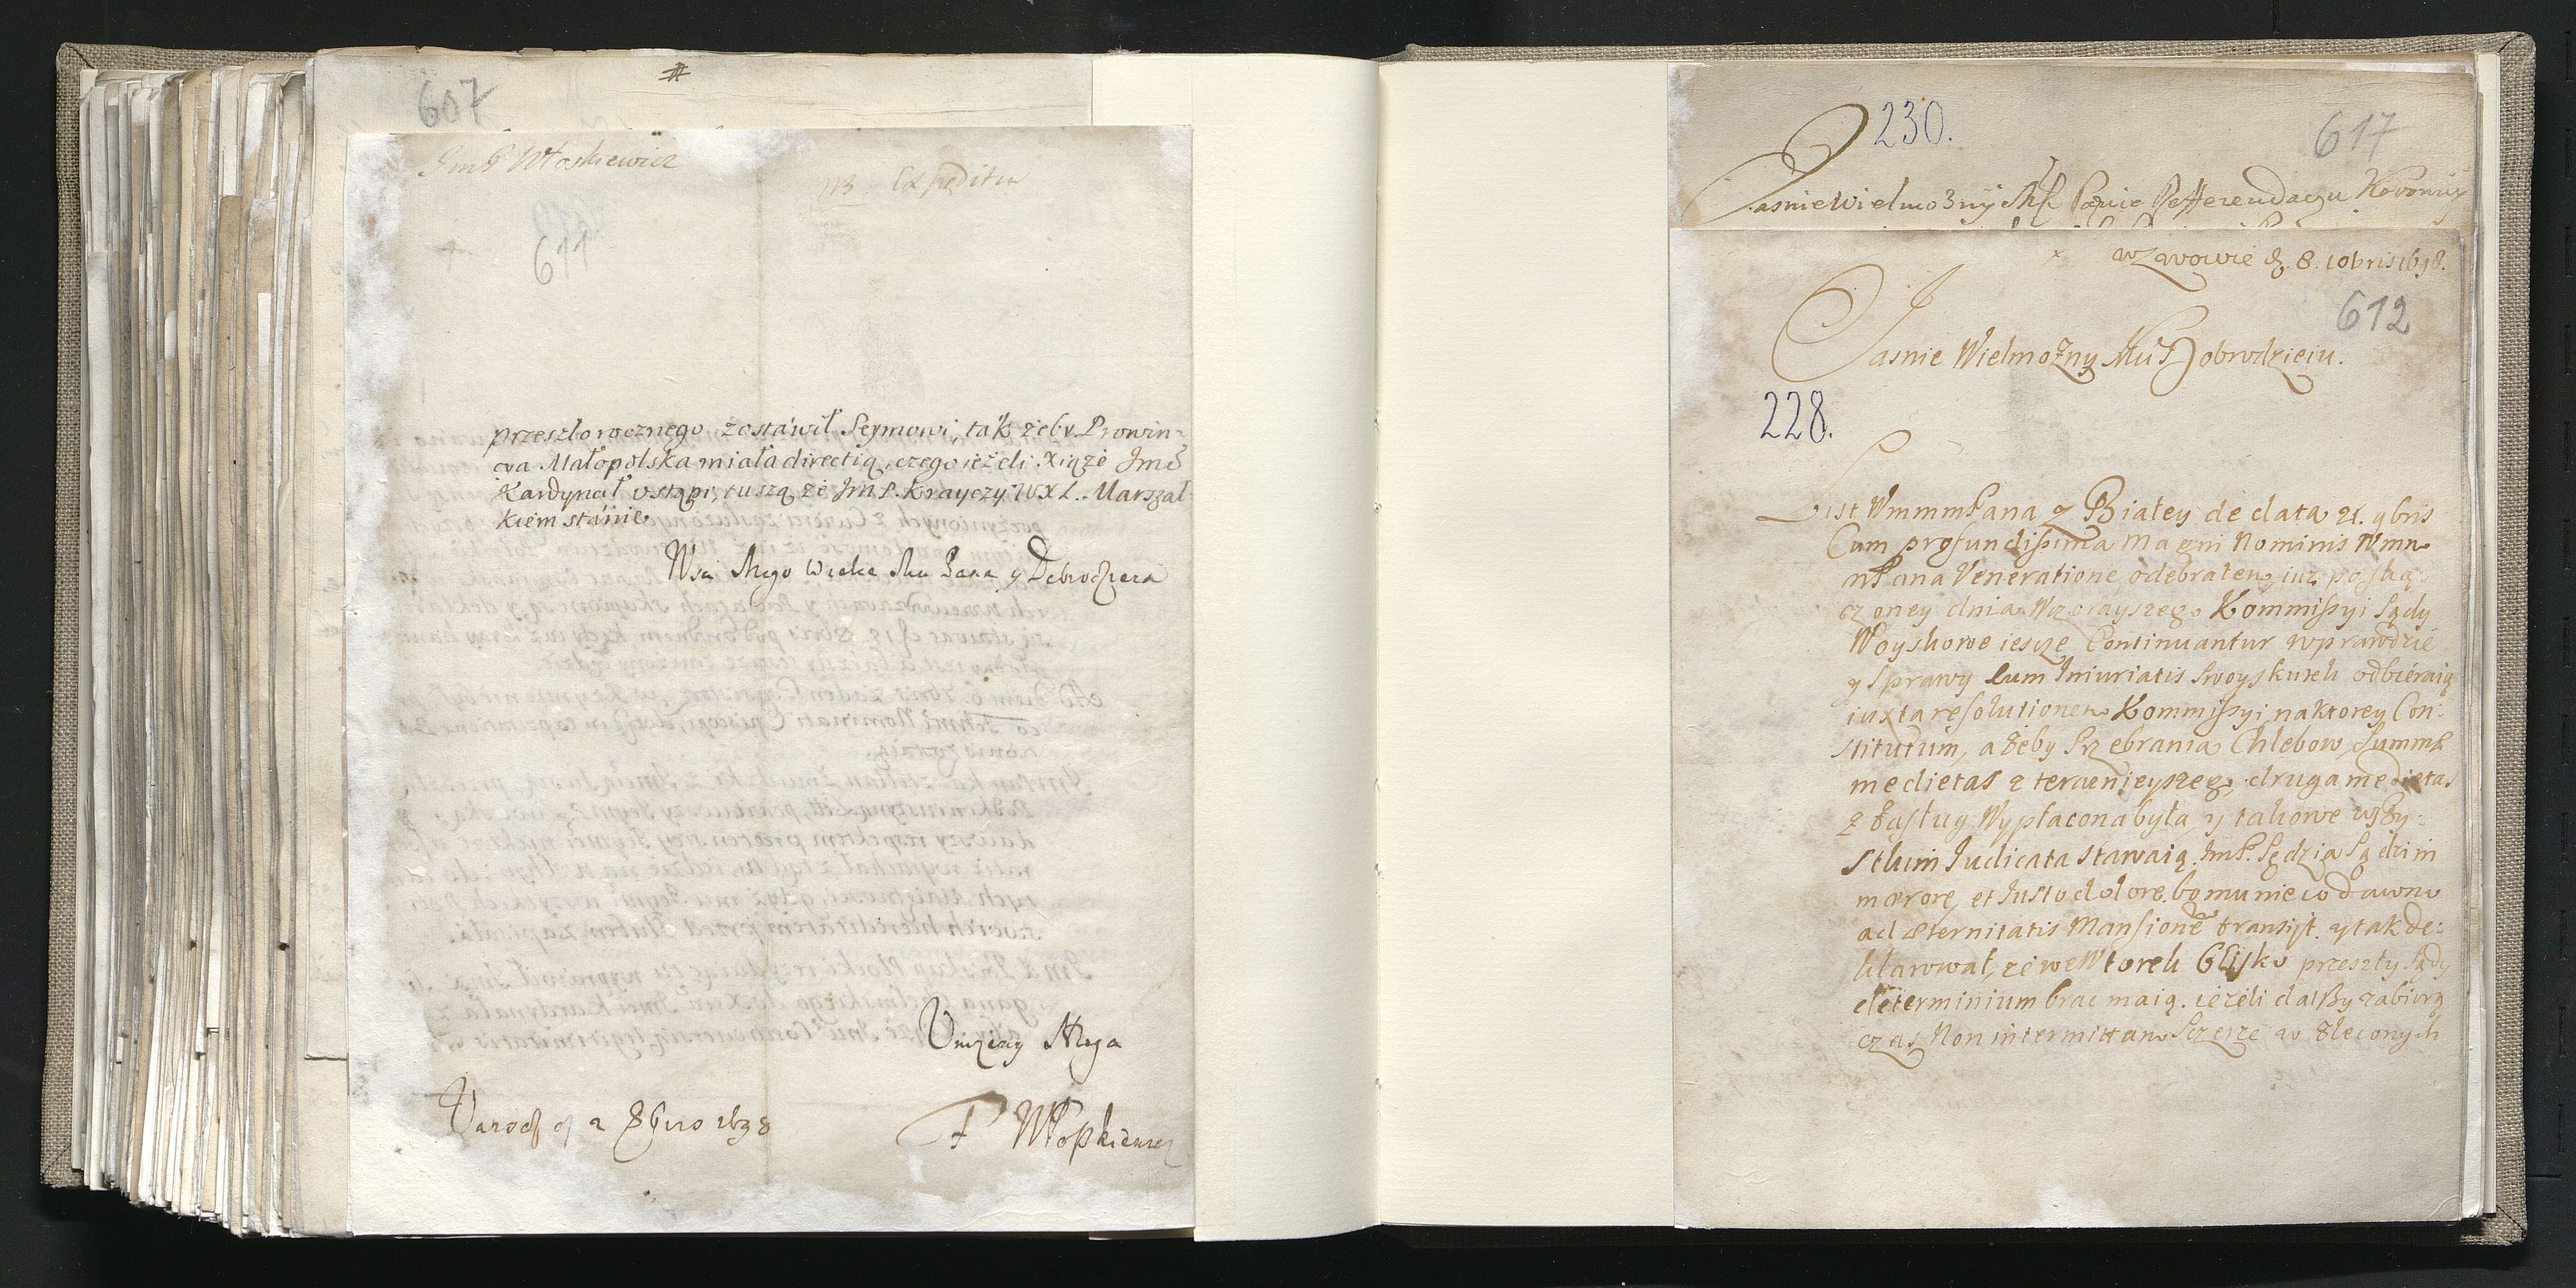 607
#
ImP Włoskiewicz
NB Expeditu
611
przeszłorocznego zostáwił Seymowi, ták żeby Prowin-
cya Małopolska miała directią, czego ieżeli Xiąże Jmć
Kardynał ustąpi, tuszą że Jm P. Krayczy WXL. Marszał
kiem stánie
Wsci Mego Wielce Mu Pana y Dobrodzieia
Unizeny Sługa
Varsov d 2 8bris 1698
F Włoskiewicz
230.
617
Jasnie Wielmozny Mśc Panie Refferendarzu Koronny
wLwowie d. 8. 10bris 1698.
612
Jasnie Wielmożny Mći Dobrodzieiu.
228.
List WmmmPana z Białey de data 21. 9bris
Cum profundissima Magni Nominis Wmm
mPana Veneratione odebrałem, iuz po ską-
czoney dnia Wczorayszego Kommissyi Sądy
Woyskowe iescze Continuantur wprawdzie
y Sprawy Cum Iniuriatis Swoy skutek odbieraią
iuxta resolutionem Kommissyi na ktorey Con-
stitutum, ażeby Przebrania Chlebow Summe
medietas z teraznieyszego, druga medietas
z Zasług Wypłacona była y takowe wszy-
stkim Iudicata stawaią. JmP. Sędzia Sądzi in
mærore, et Iusto dolore bo mu nie co dawno
ad æternitatis Mansionē transijt. y tak de-
klarował, że we Wtorek blisko przeszły Sądy
determinium brac maią. ieżeli dalszy zabiorą
czas Non intermittam Sczerze w Zleconych